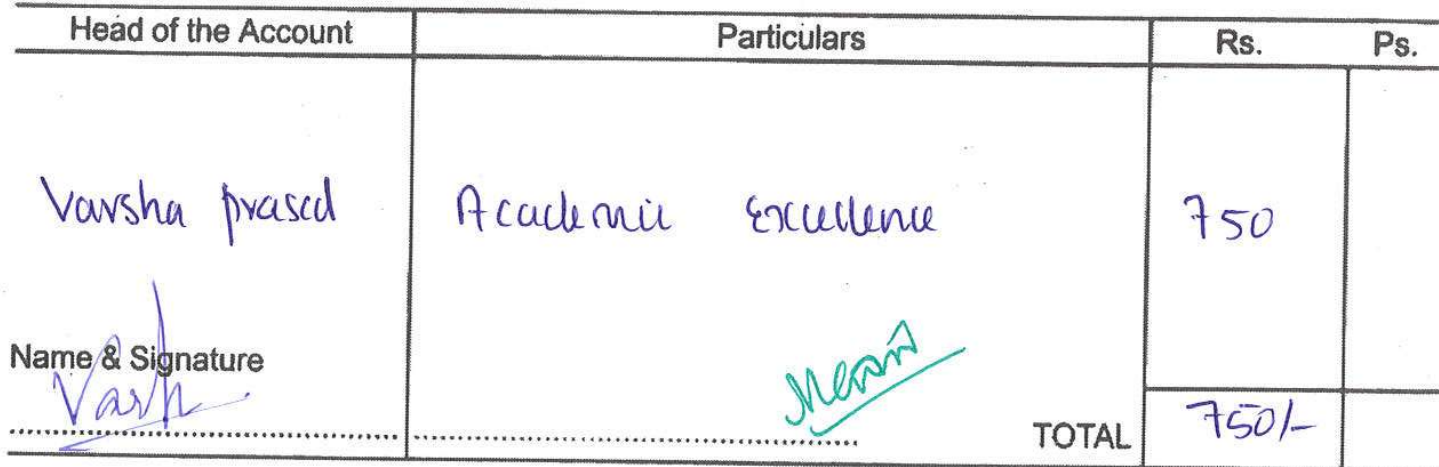 Head of the Account Particulars Rs. Ps.
Varsha prasad Academic Excellence 750
Name & Signature
Varsh
TOTAL 750/-